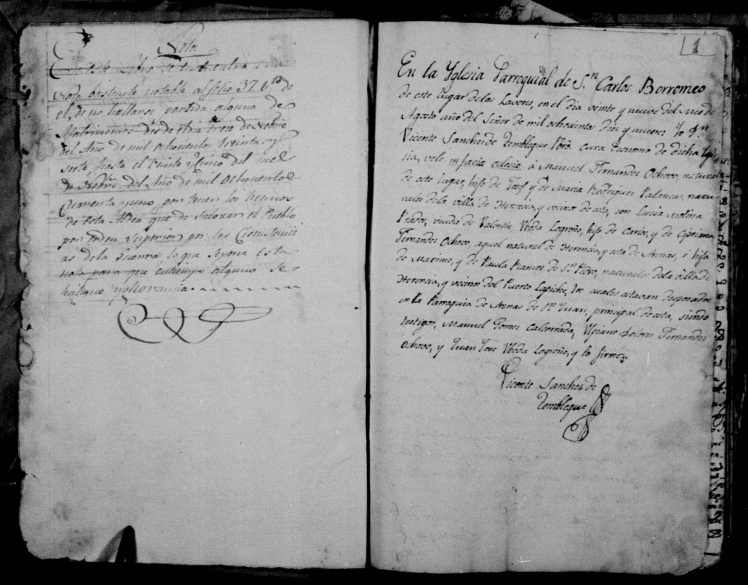 Nota
En este Libro se
esta notable al folio 37. Bto. de
el, de no hallarse partida alguna de
Matrimonio desde
del Año de mil ochocientos treinta y
siete, hasta el Veinte y cinco del mes
de del Año de mil ochocientos
Cuarenta y uno por tener los vecinos
de esta Aldea que desalojar el Pueblo
por orden Superior por las Circunstancias
as de la Guerra, lo que se pone esta
nota para que en tiempo alguno se
halque ignorancia.
1
En la Yglesia Parroquial de Sn. Carlos Borromeo
de este lugar de las Labores, en el dia veinte y nueve del mes de
Agosto año del Señor de mil ochocientos diez y nueve: Yo Dn.
Vicente Sanchez de Tembleque Pbro. Cura Ecónomo de dicha Ygle
sia, velé in facie eclesie a Manuel Fernandez Ochovo, natural
de este lugar, hijo de José y de Maria Rodriguez Palencia, natu
rales de la villa de Herencia, y vecino de esta, con Lucia Molina
Prado, viuda de Valentin Ubeda Logroño, hijo de Carlos, y de Cipriana
Fernandez Ochovo, aquel natural de Herencia, y esta de Arenas, e hija
de Maximo, y de Paula Ramos de Sn. Pedro, naturales de la villa de
Herencia, y vecinos del Puerto Lapiche, los cuales estaban desposados
en la Parroquia de Arenas de Sn. Juan, principal de esta, siendo
testigos, Manuel Gomez Calcerrada, Fernandez
Ochovo, y Juan José Ubeda Logroño, y lo firmé
Vicente Sanchez de
Tembleque